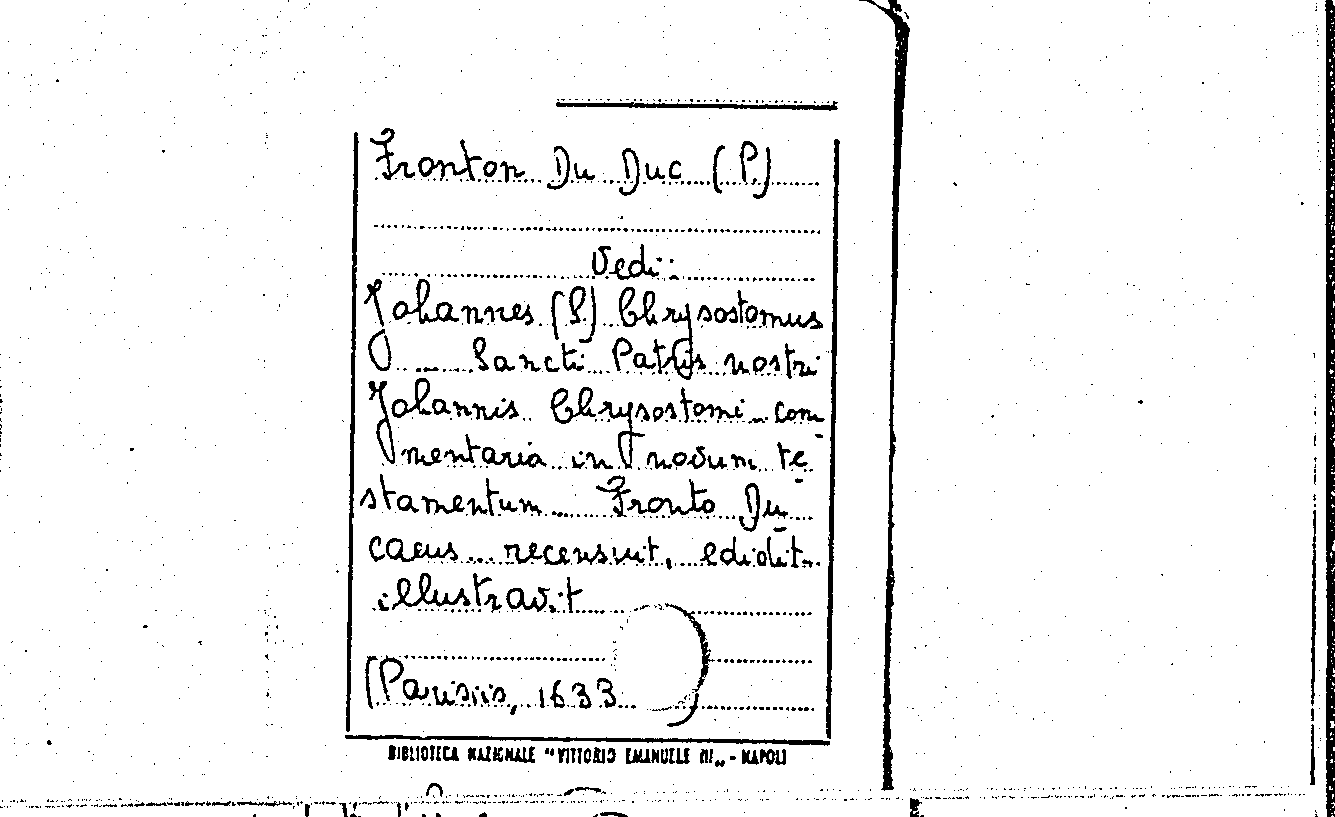 Fronton Du Duc (P)
Vedi:
Johannes (S) Chrysostomus
... Sancti Patris nostri
Johannis Chrysostomi com
mentaria in novum te
stamentum ... Fronto Du
caeus ... recensuit, edidit
illustravit
(Parisiis, 1633
BIBLIOTECA NAZIONALE "VITTORIO EMANUELE III„ - NAPOLI